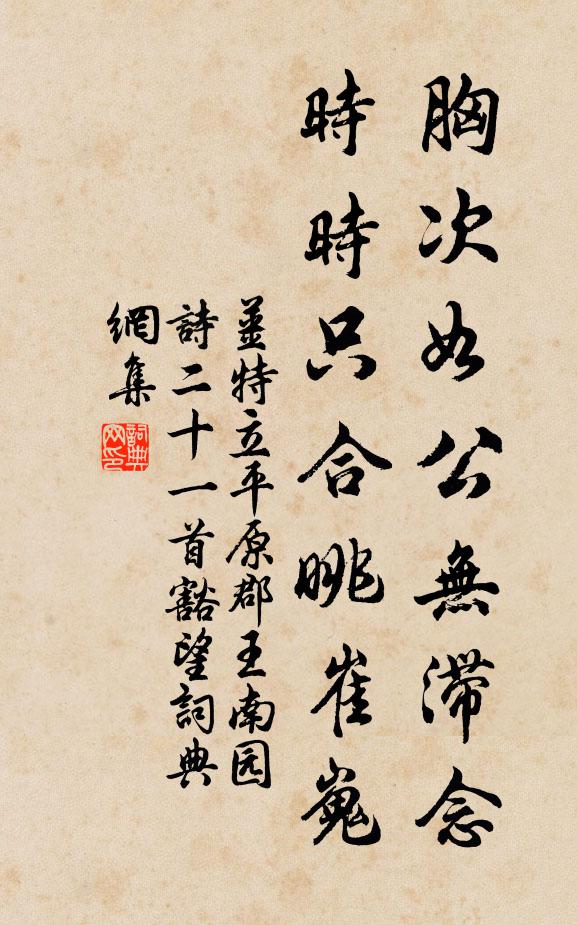 胸次如公無滯念
時時只合眺崔嵬
薑特立平原郡王南园
詩二十一首豁望詞典
網集
詞典
网印